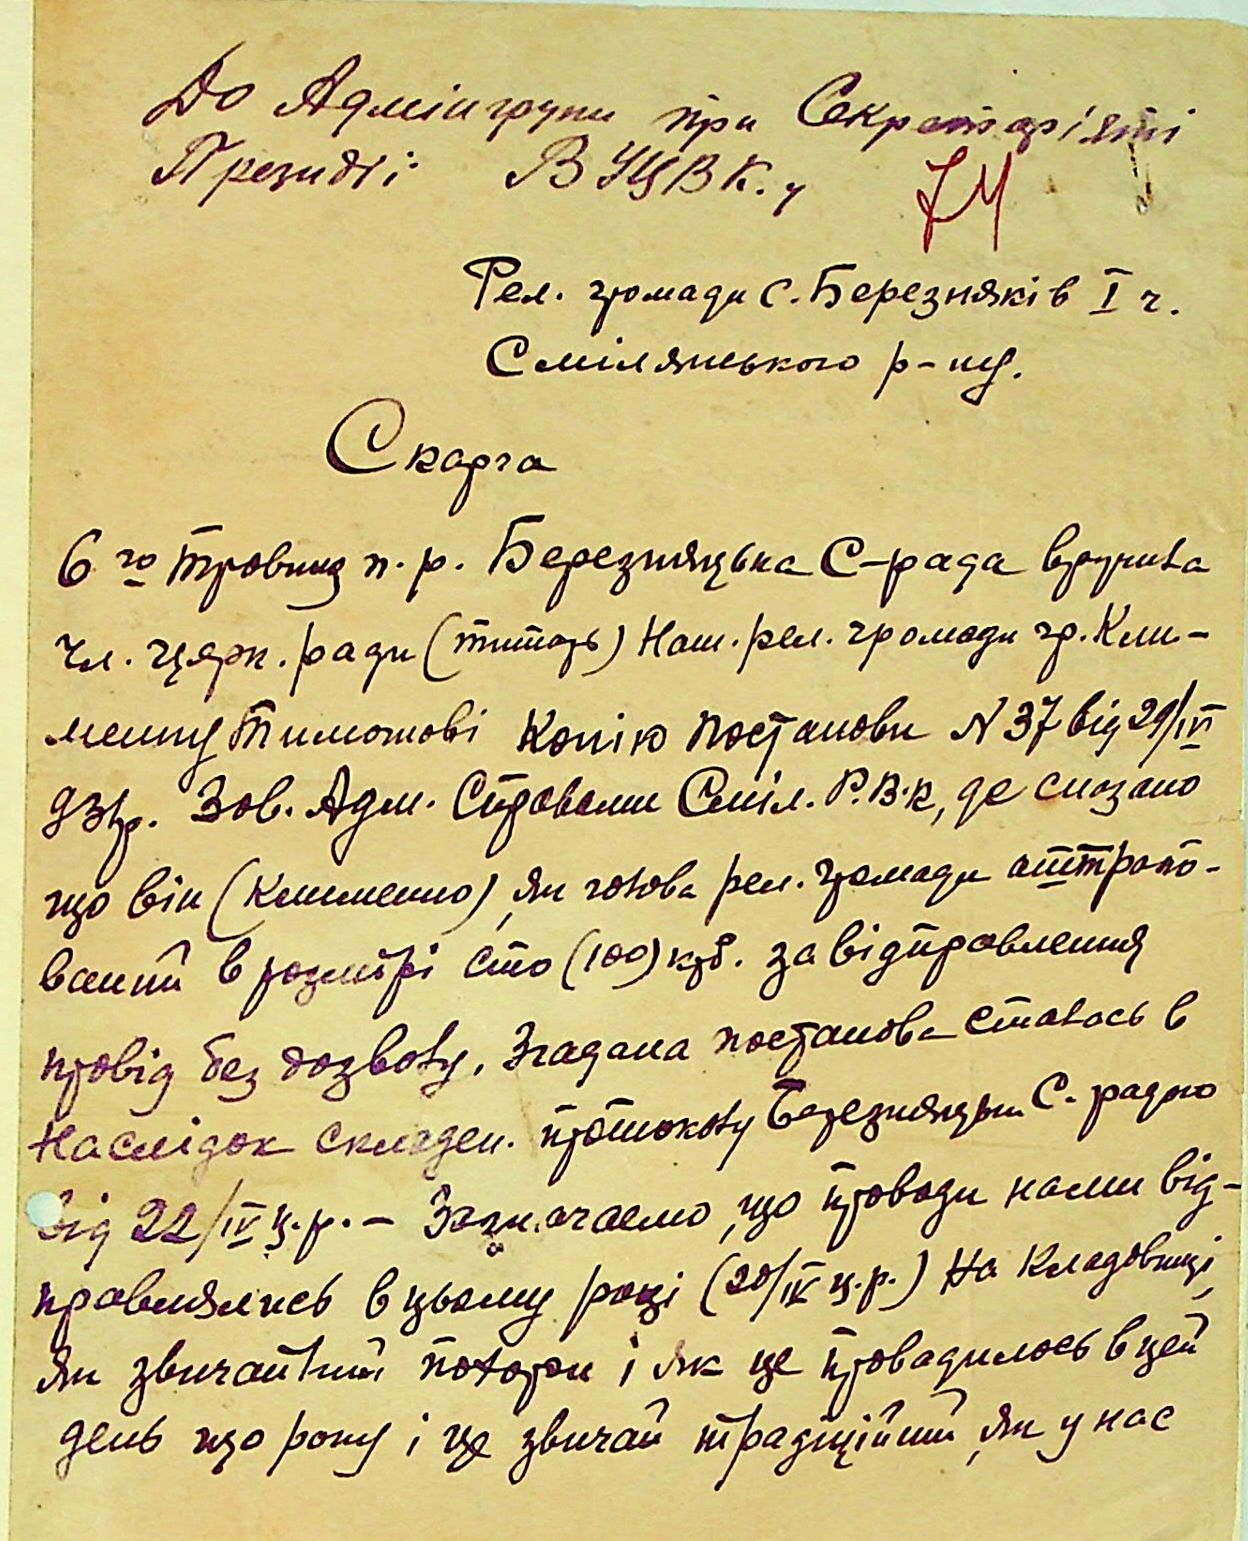 До Адмінгрупи при Секретаріяті
Президії ВУЦВК.у
Рел. громади с. Березняків I ч.
Смілянського р-ну.
Скарга
6 го травня п. р. Березняцька С-рада вручила
Чл. церк. ради (титарь) Наш. рел. громади гр. Кли-
менку Тимошові Копію постанови N 37 від 29/IV
Зав. Адм. Справами Сміл. Р.В.К, де сказано
що він (Клименко), як голова рел. громади оштрафо-
ваний в розмірі сто (100) крб. за відправлення
провід без дозволу. Згадана постанова сталась в
Наслідок складен. протоколу Березняцьк. С. радою
від 22/IV ц.р. – Зазначаємо, що проводи нами від-
правлялись в цьому році (20/IV ц.р.) на кладовищі,
як звичайний похорон і як це провадилось в цей
день що року і це звичай традіційний, як у нас